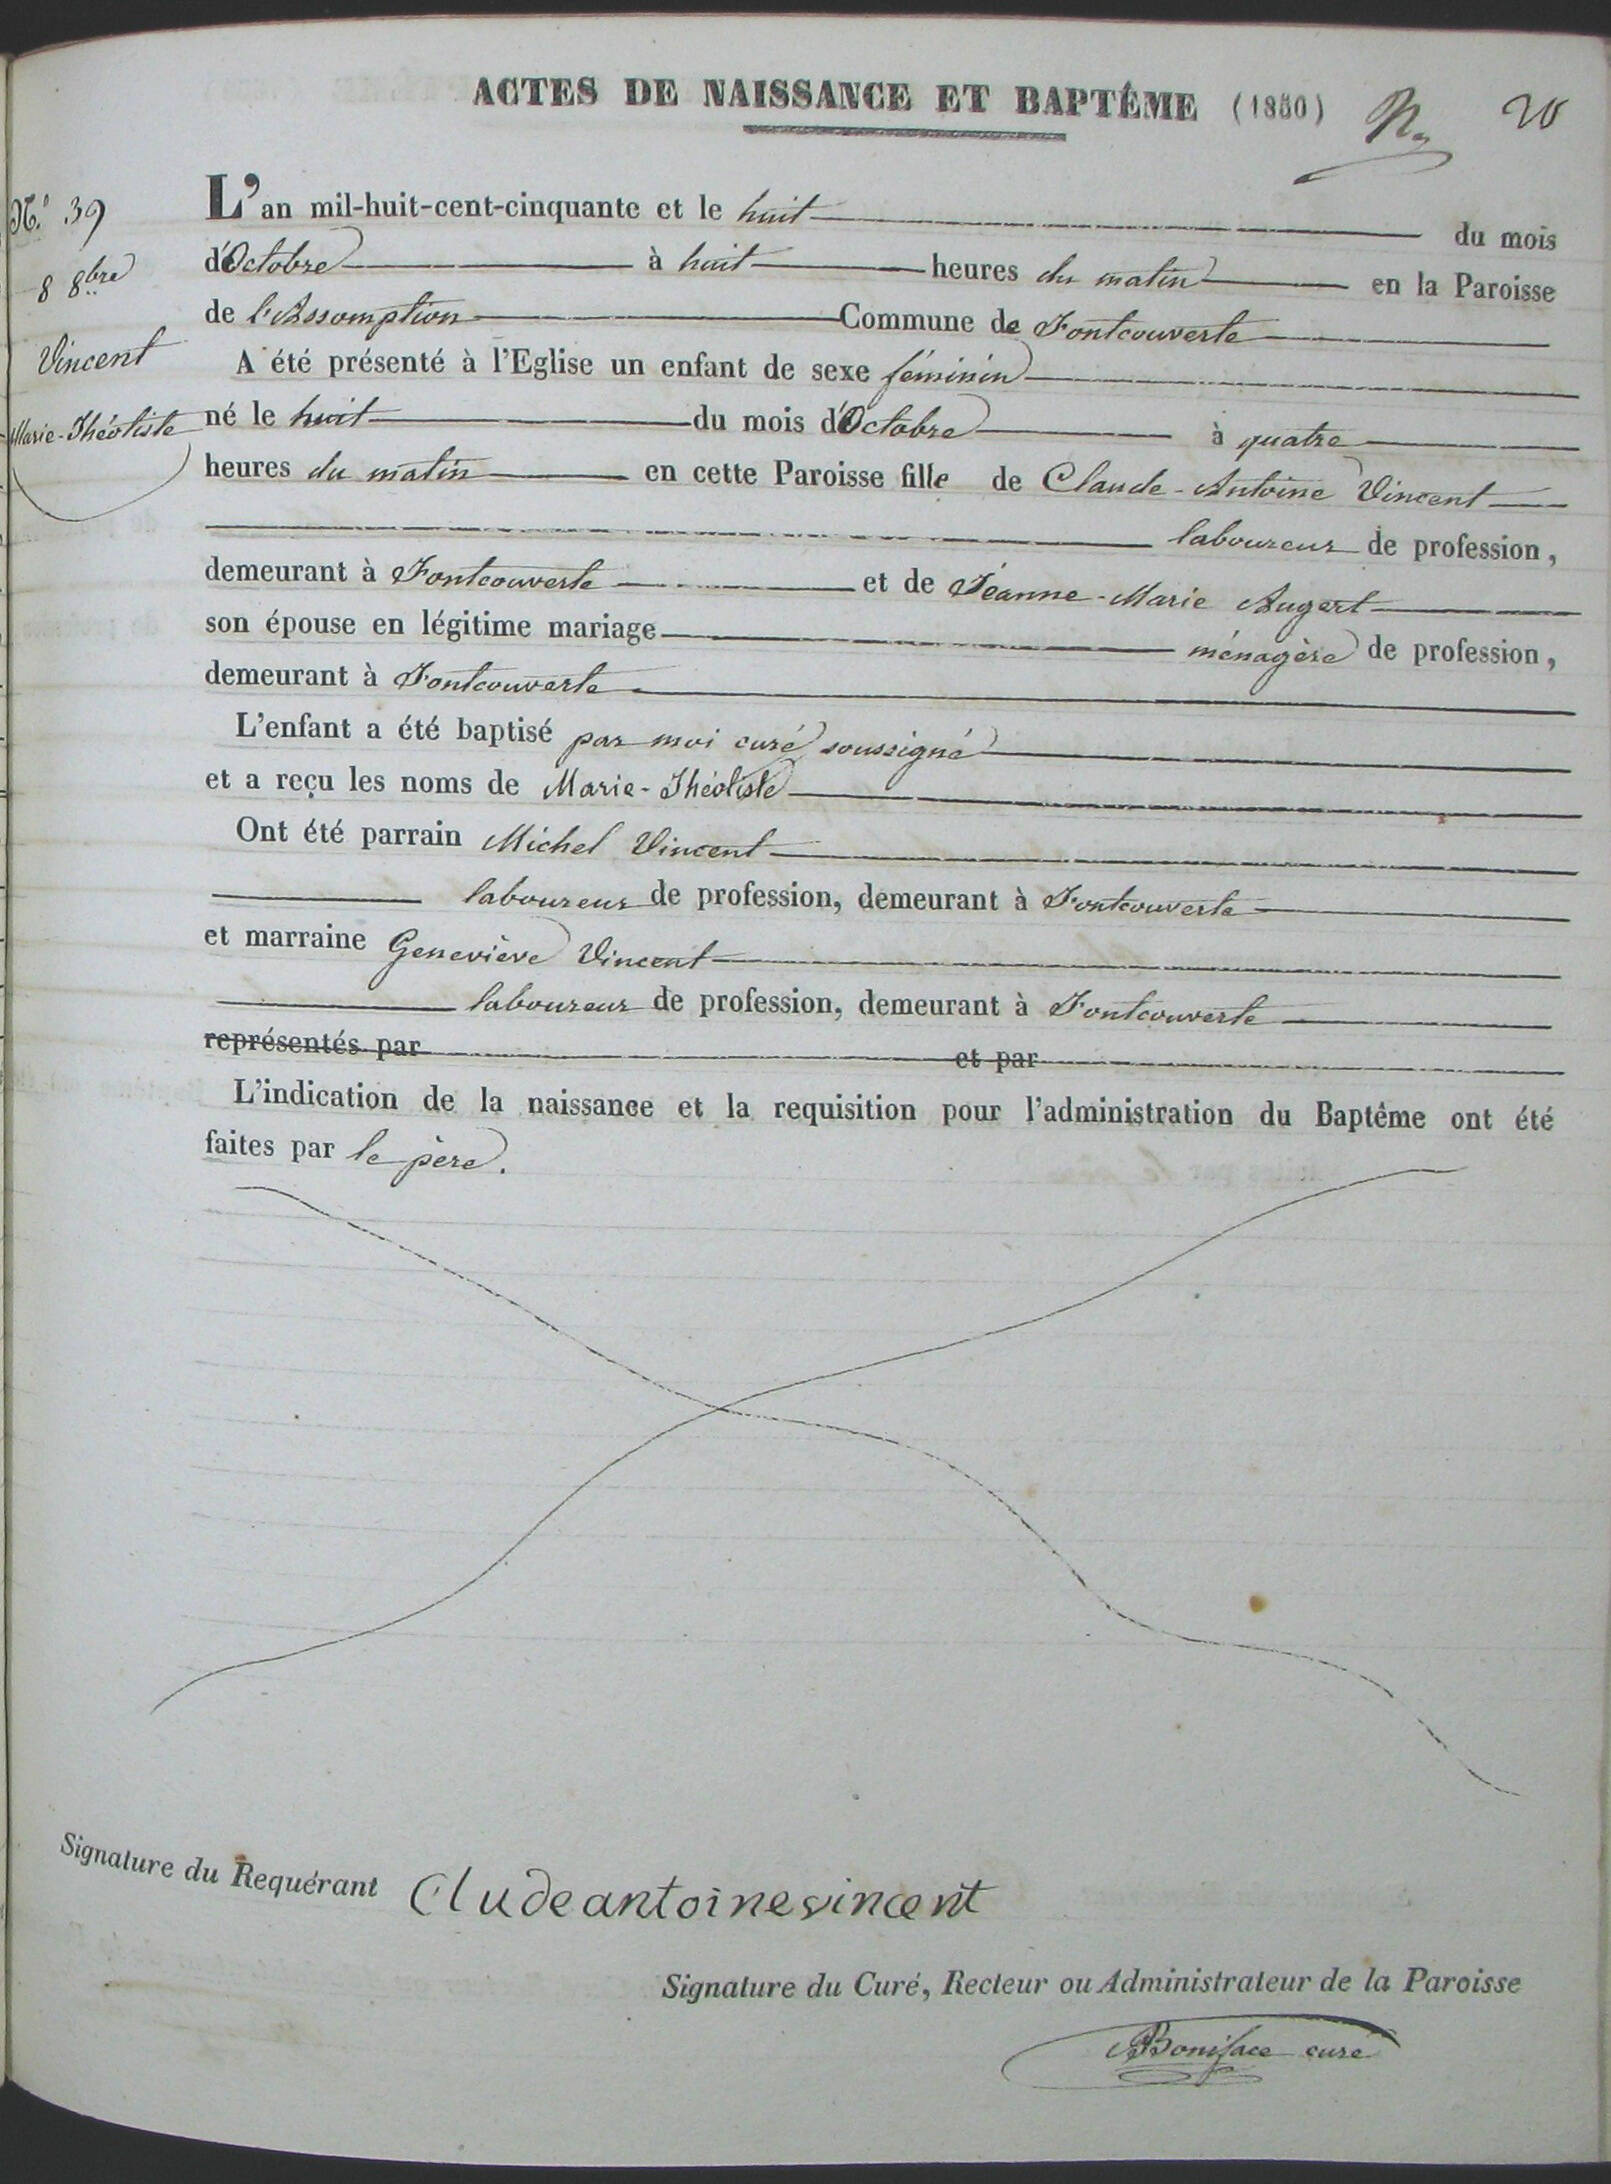 ACTES DE NAISSANCE ET BAPTÊME (1850) 20
N.° 39
8 8bre
Vincent
Marie-Théotiste
L'an mil-huit-cent-cinquante et le huit du mois
d'Octobre à huit heures du matin en la Paroisse
de l'Assomption Commune de Fontcouverte
A été présenté à l'Eglise un enfant de sexe féminin
né le huit du mois d'Octobre à quatre
heures du matin en cette Paroisse fille de Claude-Antoine Vincent
laboureur de profession,
demeurant à Fontcouverte et de Jeanne-Marie Augert
son épouse en légitime mariage ménagère de profession,
demeurant à Fontcouverte
L'enfant a été baptisé par moi curé soussigné
et a reçu les noms de Marie-Théotiste
Ont été parrain Michel Vincent
laboureur de profession, demeurant à Fontcouverte
et marraine Geneviève Vincent
laboureur de profession, demeurant à Fontcouverte
représentés par et par
L'indication de la naissance et la requisition pour l'administration du Baptême ont été
faites par le père.
Signature du Requérant Cludeantoinevincent
Signature du Curé, Recteur ou Administrateur de la Paroisse
Boniface curé